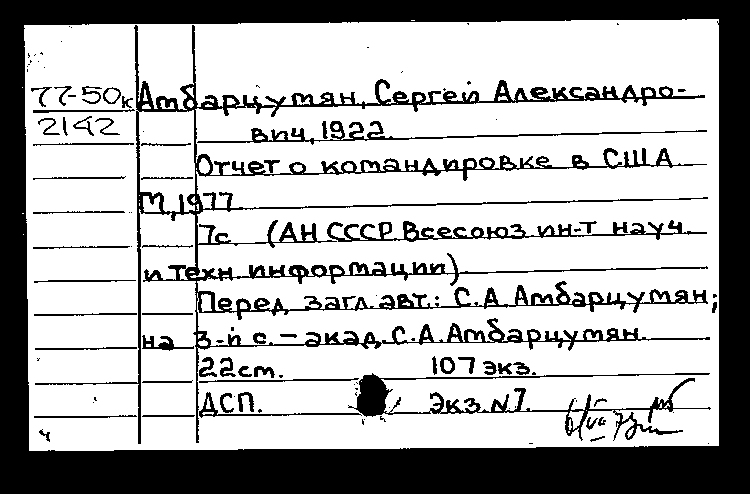 77-50к Амбарцумян, Сергей Александро-
2142 вич, 1922.
Отчет о командировке в США
М., 1977
7с (АН СССР. Всесоюз ин-т науч.
и техн. информации)
Перед загл. авт.: С.А. Амбарцумян;
на 3-й с. – акад. С.А. Амбарцумян.
22 см. 107 экз.
ДСП. Экз. N7.